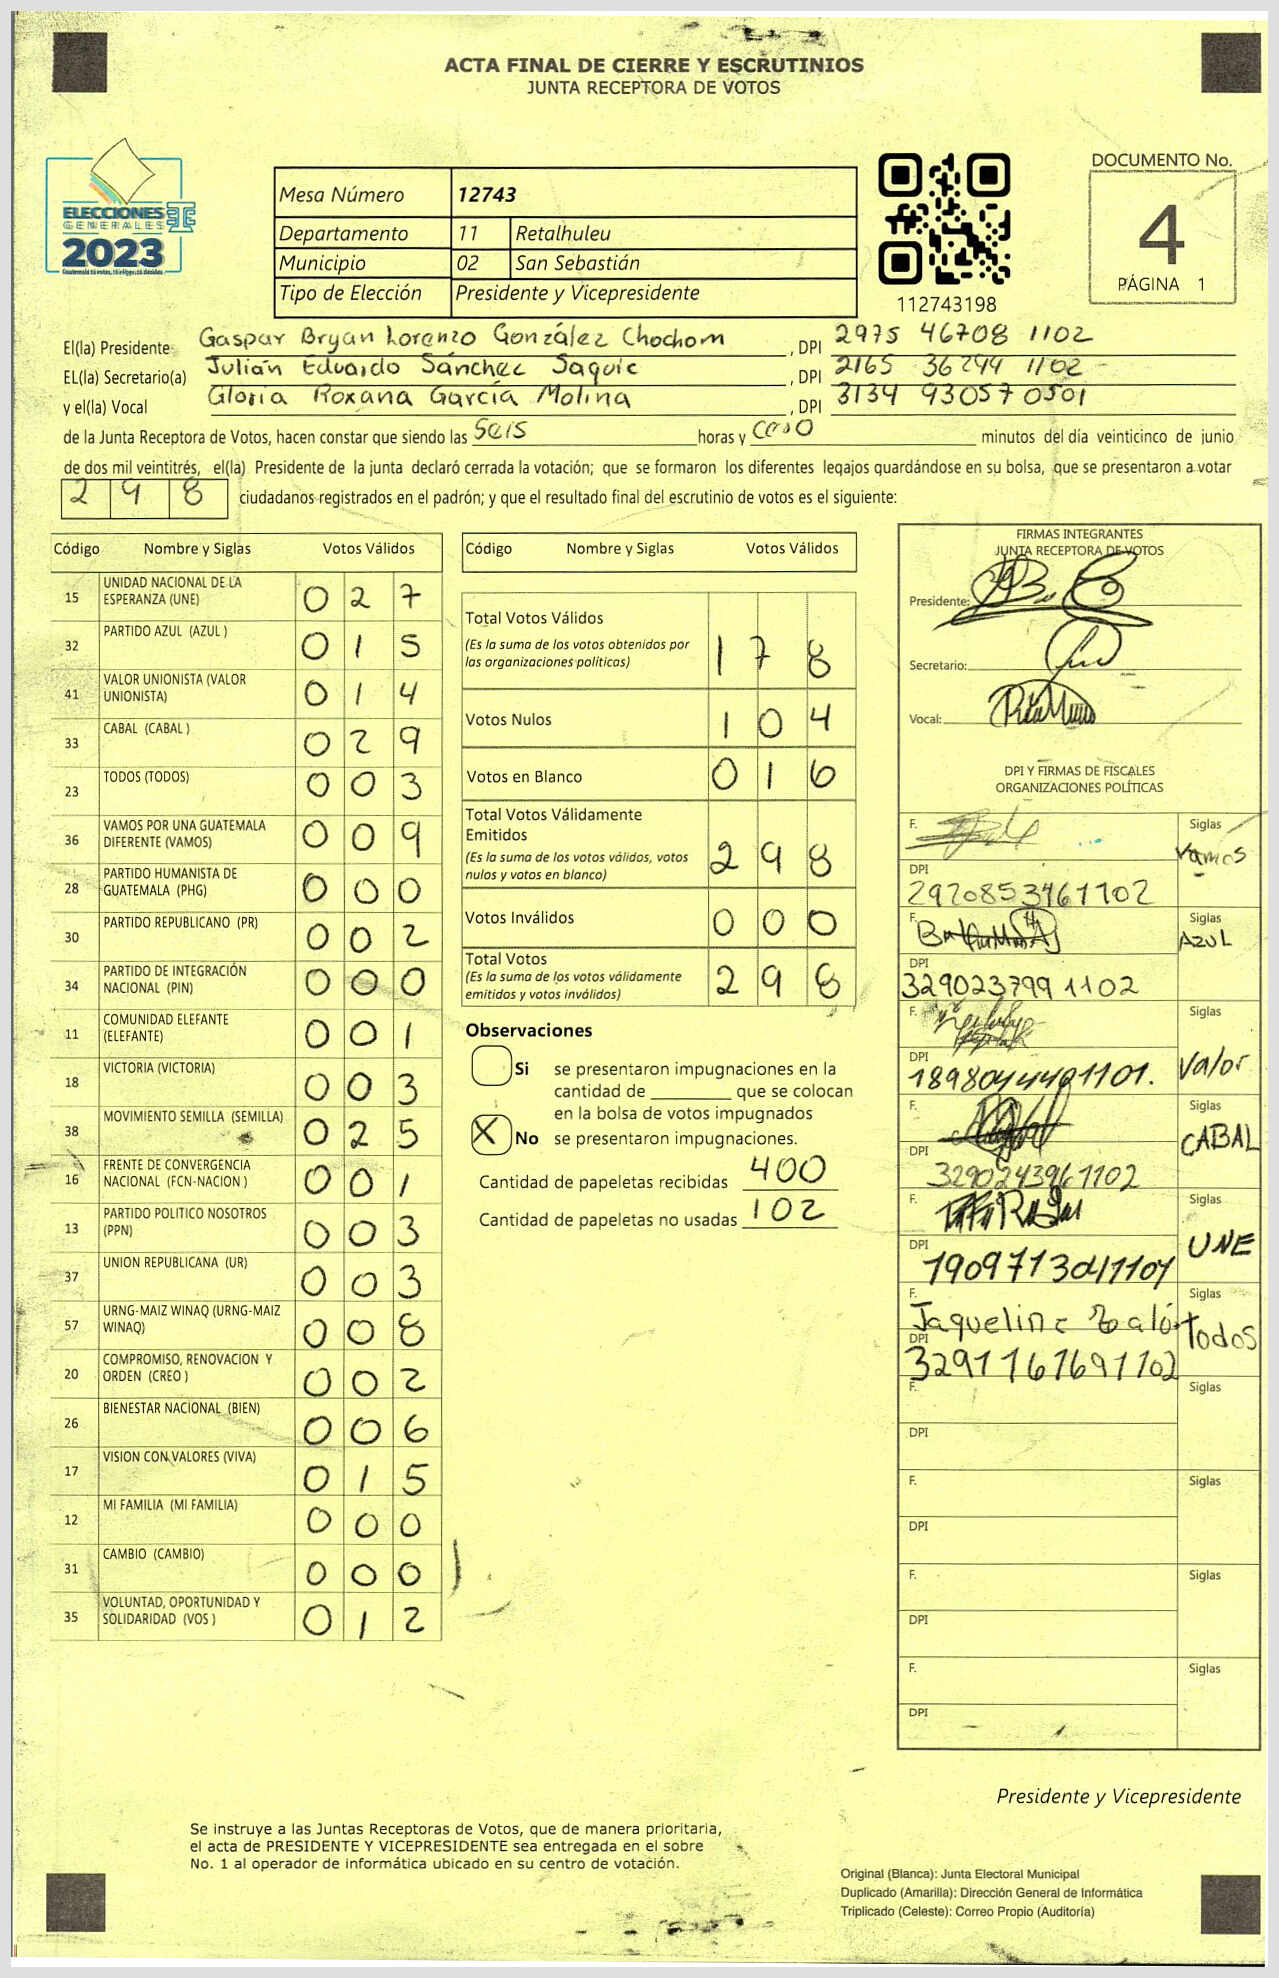 ACTA FINAL DE CIERRE Y ESCRUTINIOS
JUNTA RECEPTORA DE VOTOS
ELECCIONES
GENERALES
2023
Mesa Número 12743
Departamento 11 Retalhuleu
Municipio 02 San Sebastián
Tipo de Elección Presidente y Vicepresidente
112743198
DOCUMENTO No.
4
PÁGINA 1
El(la) Presidente Gaspar Bryan Lorenzo González Chochom , DPI 2975 46708 1102
EL(la) Secretario(a) Julián Eduardo Sánchez Saquic , DPI 2165 36244 1102
y el(la) Vocal Gloria Roxana García Molina , DPI 3134 93057 0501
de la Junta Receptora de Votos, hacen constar que siendo las Seis horas y cero minutos del día veinticinco de junio
de dos mil veintitrés, el(la) Presidente de la junta declaró cerrada la votación; que se formaron los diferentes legajos guardándose en su bolsa, que se presentaron a votar
298 ciudadanos registrados en el padrón; y que el resultado final del escrutinio de votos es el siguiente:
Código Nombre y Siglas Votos Válidos
15 UNIDAD NACIONAL DE LA ESPERANZA (UNE) 027
32 PARTIDO AZUL (AZUL ) 015
41 VALOR UNIONISTA (VALOR UNIONISTA) 014
33 CABAL (CABAL ) 029
23 TODOS (TODOS) 003
36 VAMOS POR UNA GUATEMALA DIFERENTE (VAMOS) 009
28 PARTIDO HUMANISTA DE GUATEMALA (PHG) 000
30 PARTIDO REPUBLICANO (PR) 002
34 PARTIDO DE INTEGRACIÓN NACIONAL (PIN) 000
11 COMUNIDAD ELEFANTE (ELEFANTE) 001
18 VICTORIA (VICTORIA) 003
38 MOVIMIENTO SEMILLA (SEMILLA) 025
16 FRENTE DE CONVERGENCIA NACIONAL (FCN-NACION ) 001
13 PARTIDO POLITICO NOSOTROS (PPN) 003
37 UNION REPUBLICANA (UR) 003
57 URNG-MAIZ WINAQ (URNG-MAIZ WINAQ) 008
20 COMPROMISO, RENOVACION Y ORDEN (CREO ) 002
26 BIENESTAR NACIONAL (BIEN) 006
17 VISION CON VALORES (VIVA) 015
12 MI FAMILIA (MI FAMILIA) 000
31 CAMBIO (CAMBIO) 000
35 VOLUNTAD, OPORTUNIDAD Y SOLIDARIDAD (VOS ) 012
Código Nombre y Siglas Votos Válidos
Total Votos Válidos 178
(Es la suma de los votos obtenidos por
las organizaciones políticas)
Votos Nulos 104
Votos en Blanco 016
Total Votos Válidamente
Emitidos 298
(Es la suma de los votos válidos, votos
nulos y votos en blanco)
Votos Inválidos 000
Total Votos 298
(Es la suma de los votos válidamente
emitidos y votos inválidos)
Observaciones
Si se presentaron impugnaciones en la
cantidad de ________ que se colocan
en la bolsa de votos impugnados
X No se presentaron impugnaciones.
Cantidad de papeletas recibidas 400
Cantidad de papeletas no usadas 102
FIRMAS INTEGRANTES
JUNTA RECEPTORA DE VOTOS
Presidente:
Secretario:
Vocal:
DPI Y FIRMAS DE FISCALES
ORGANIZACIONES POLÍTICAS
F. Siglas Vamos
DPI 2920853461102
F. Siglas AZUL
DPI 3290237991102
F. Siglas Valor
DPI 1898044401101.
F. Siglas CABAL
DPI 3290243961102
F. Siglas UNE
DPI
F. Jaqueline Siglas Todos
DPI 3291161691102
F. Siglas
DPI
F. Siglas
DPI
F. Siglas
DPI
F. Siglas
DPI
Presidente y Vicepresidente
Se instruye a las Juntas Receptoras de Votos, que de manera prioritaria,
el acta de PRESIDENTE Y VICEPRESIDENTE sea entregada en el sobre
No. 1 al operador de informática ubicado en su centro de votación.
Original (Blanca): Junta Electoral Municipal
Duplicado (Amarilla): Dirección General de Informática
Triplicado (Celeste): Correo Propio (Auditoría)